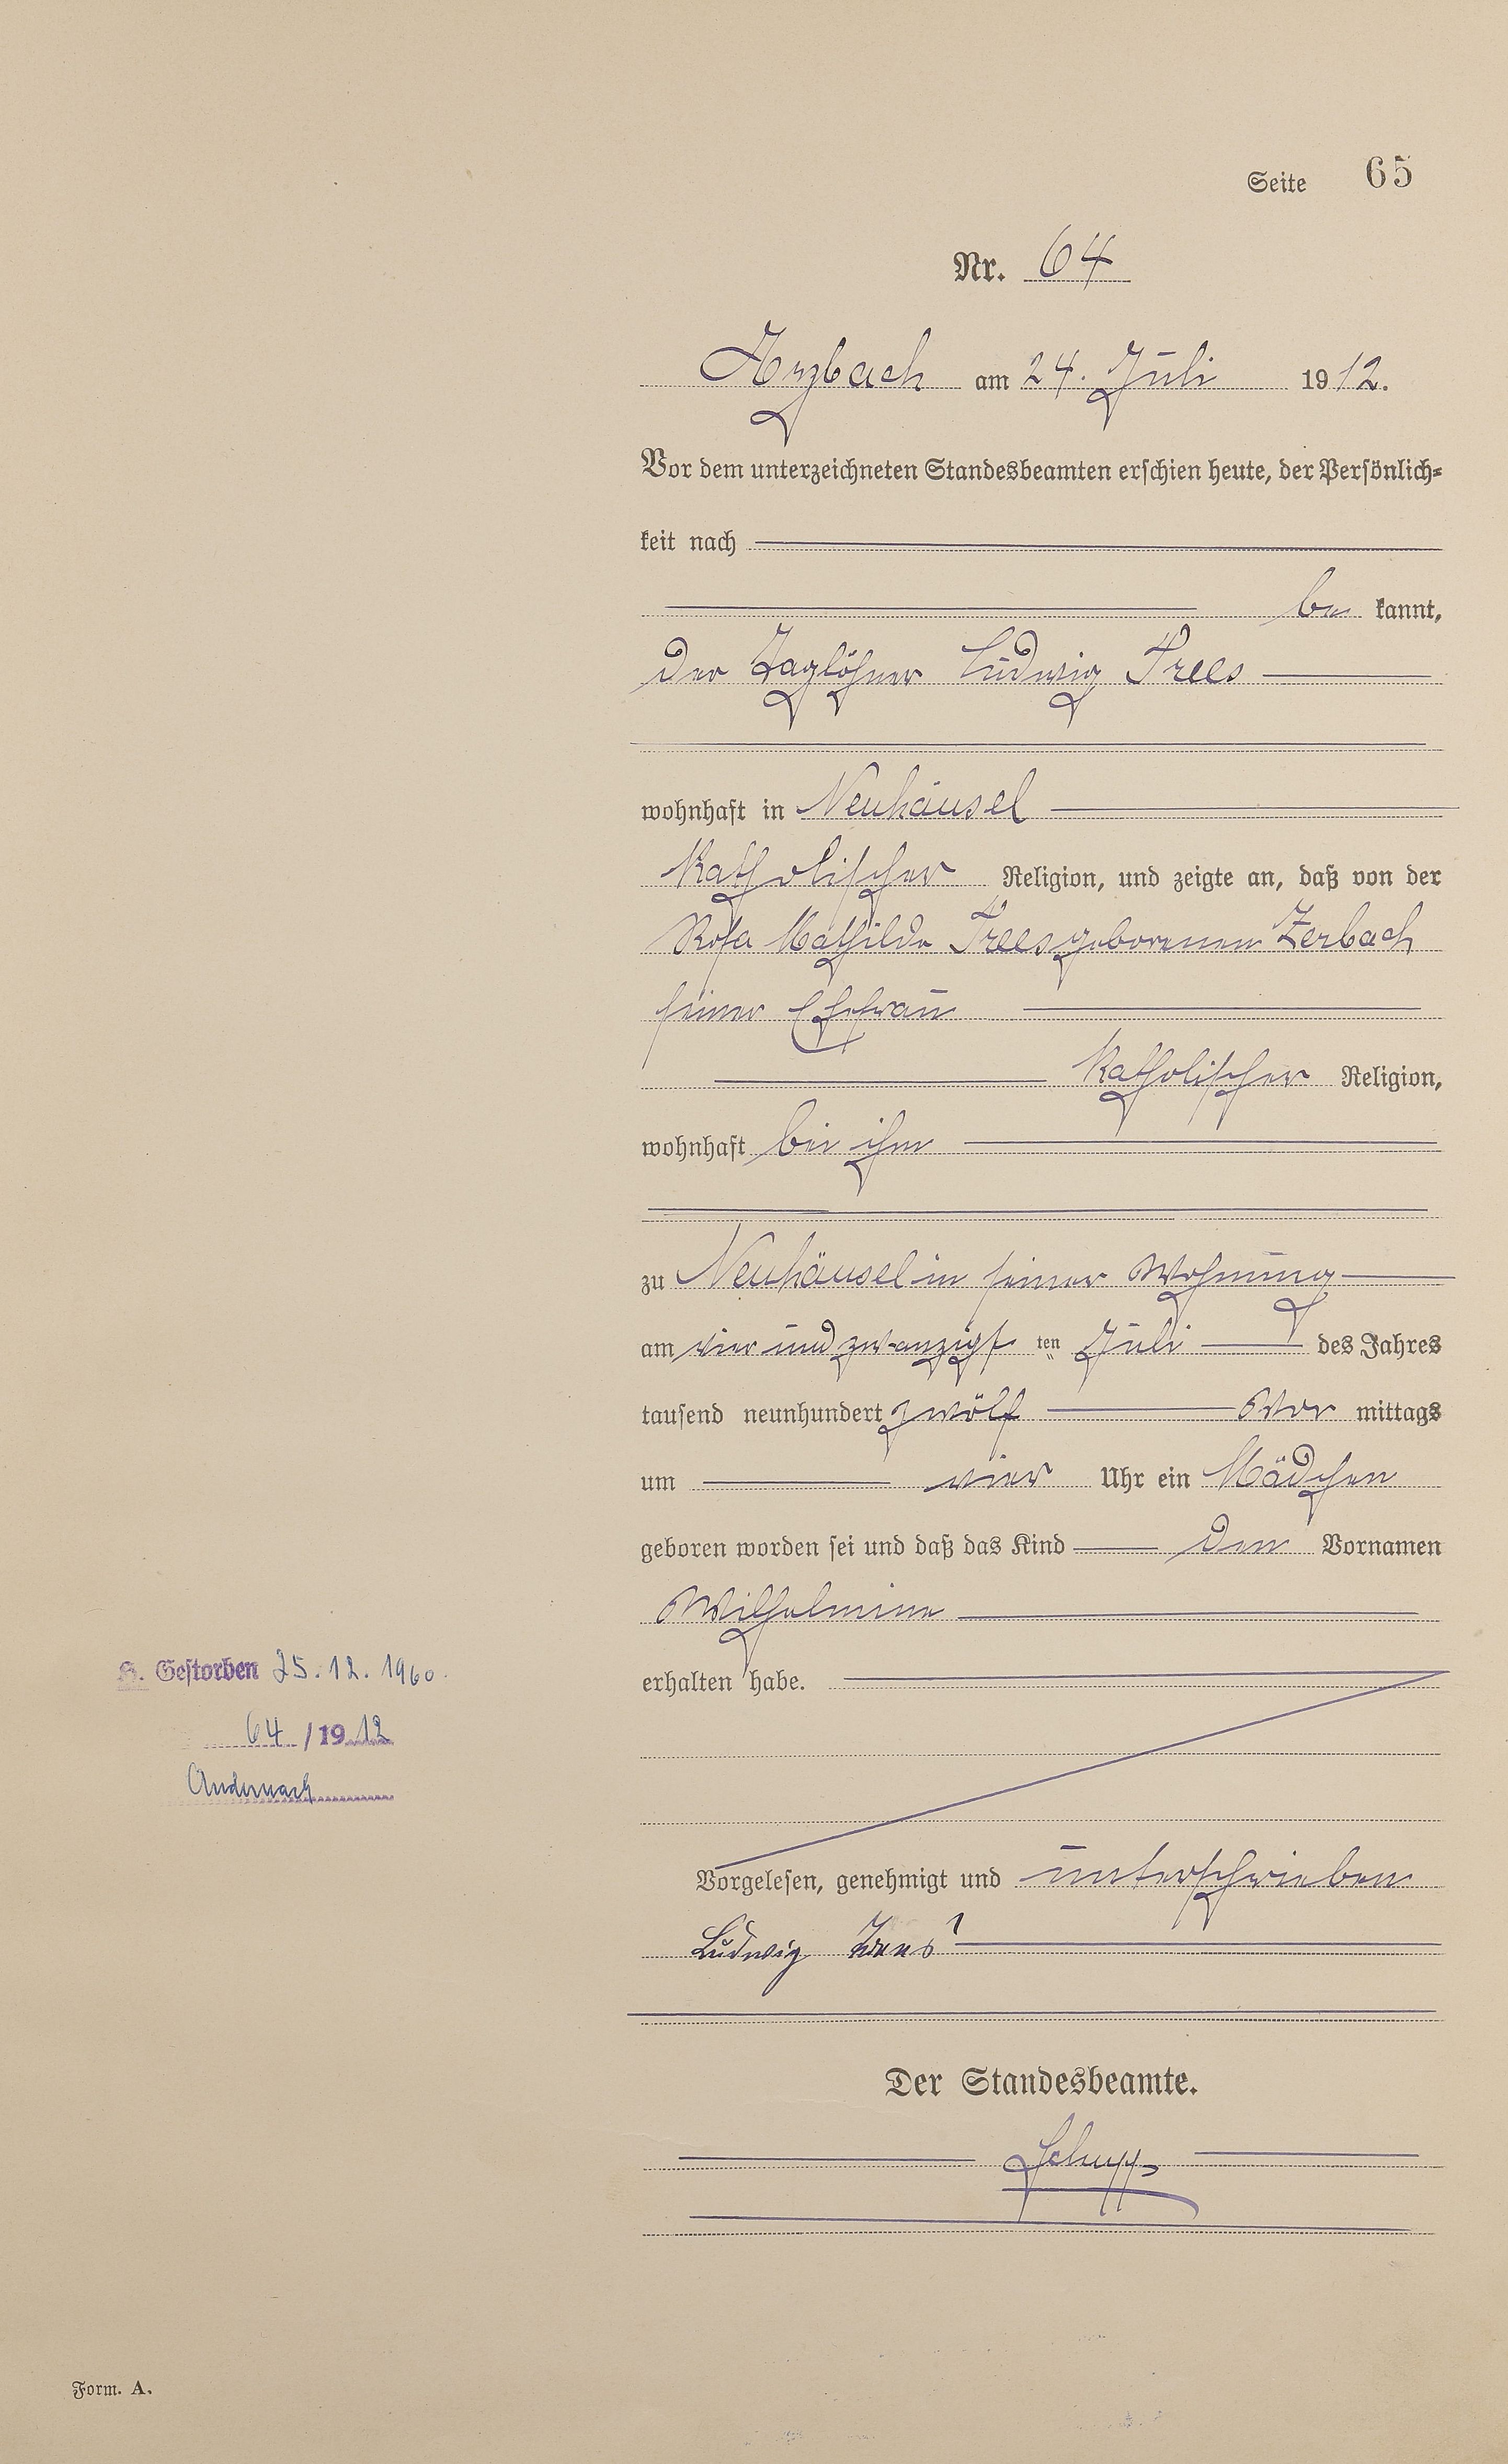 Seite 65
Nr. 64
Arzbach am 24. Juli 1912.
Vor dem unterzeichneten Standesbeamten erschien heute, der Persönlich=
keit nach
be kannt,
der Taglöhner Ludwig Frees
wohnhaft in Neuhäusel
katholischer Religion, und zeigte an, daß von der
Rosa Mathilde Frees geborenen Zerbach
seiner Ehefrau
katholischer Religion,
wohnhaft bei ihm
zu Neuhäusel in seiner Wohnung
am vier und zwanzigs ten Juli des Jahres
tausend neunhundert zwölf Vor mittags
um vier Uhr ein Mädchen
geboren worden sei und daß das Kind den Vornamen
Wilhelmine
erhalten habe.
H. Gestorben 25.12.1960.
64 / 1912
Andernach
Vorgelesen, genehmigt und unterschrieben
Ludwig Frees
Der Standesbeamte.
Schupp
Form. A.